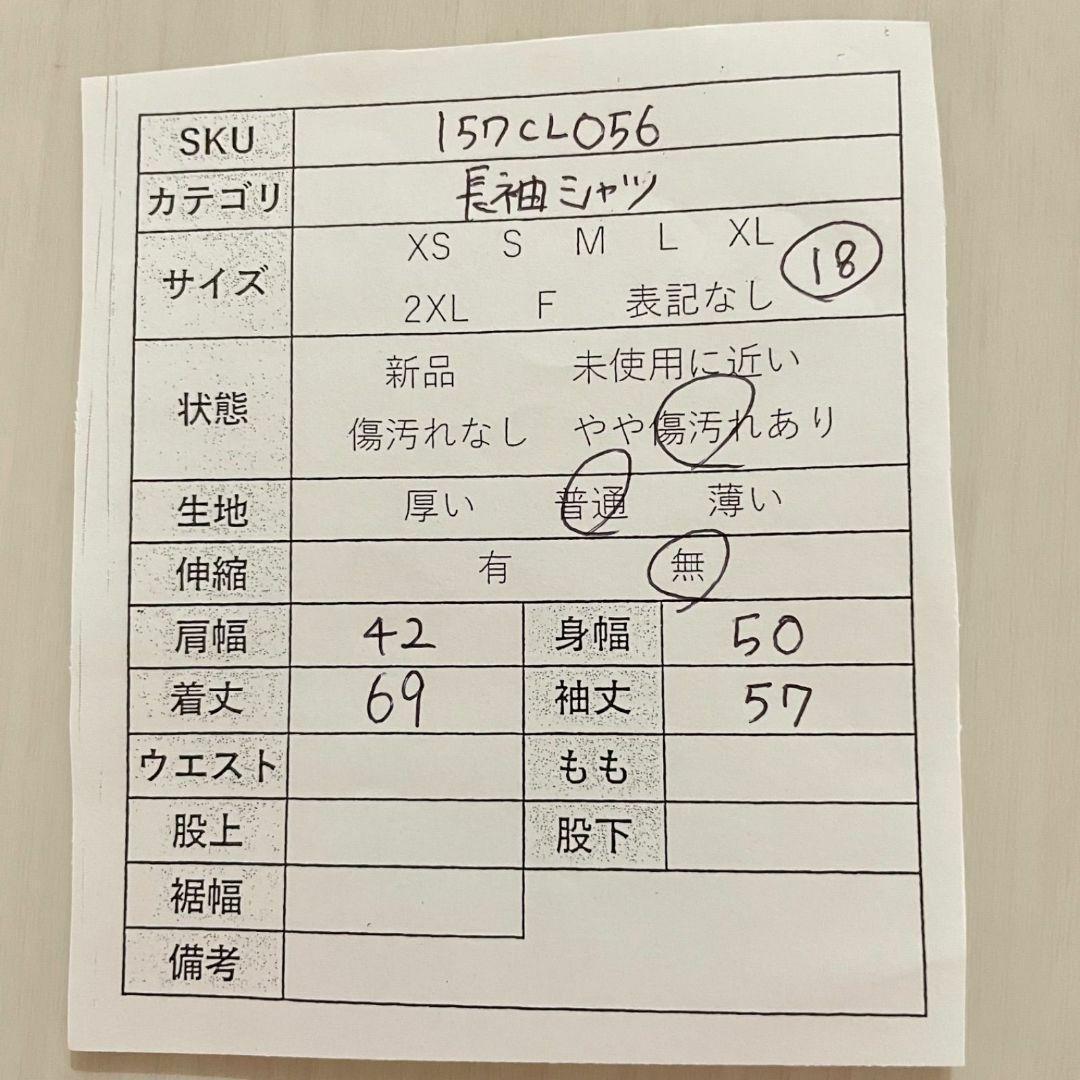 SKU 157CL056
カテゴリ 長袖シャツ
サイズ XS S M L XL 18
2XL F 表記なし
状態 新品 未使用に近い
傷汚れなし やや傷汚れあり
生地 厚い 普通 薄い
伸縮 有 無
肩幅 42 身幅 50
着丈 69 袖丈 57
ウエスト もも
股上 股下
裾幅
備考